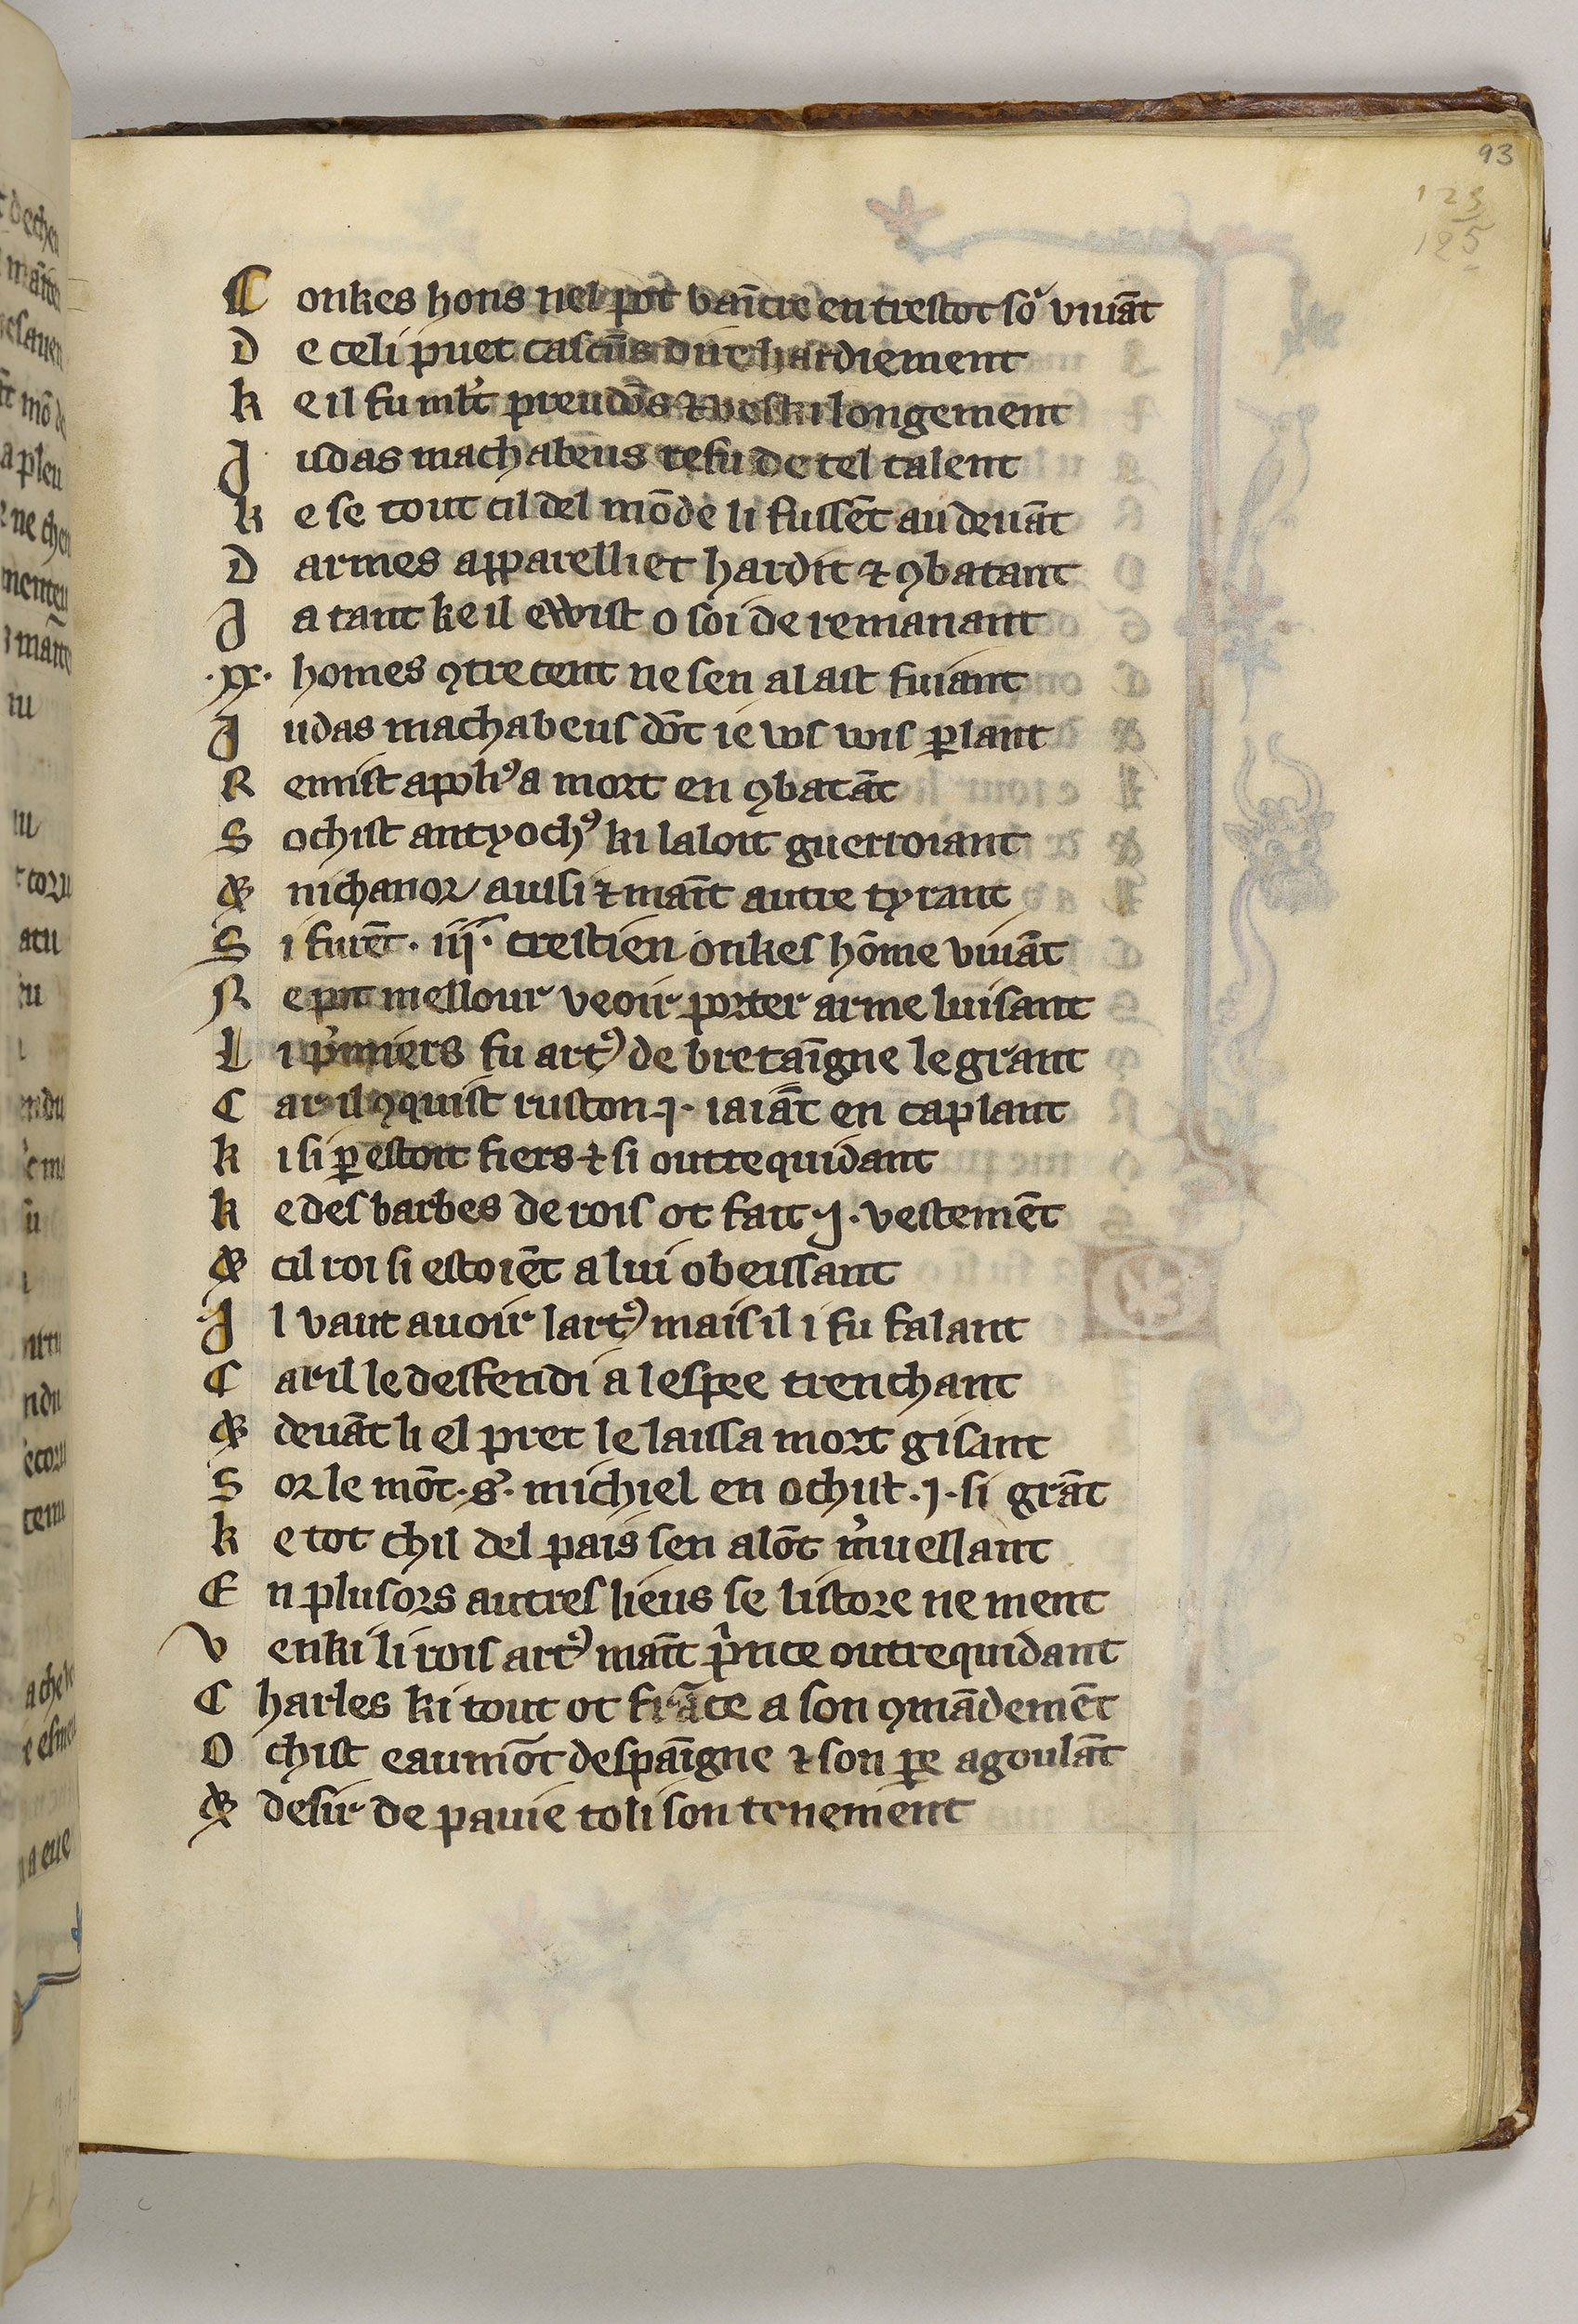 93
123
125
C onkes hons nel pot vaīcre en trestot so͛ viuāt
D e celi puet cascūs dire hardiement
k e il fu ml't preudōs ⁊ veski longement
J udas machabeus refu de tel talent
k e se tout cil del mōde li fussēt au deuāt
D armes apparelliet hardit ⁊ ꝯbatant
J a tant ke il ewist o soi de remanant
.xx. homes ꝯtre cent ne sen alast fuiant
J udas machabeus dōt ie vos vois ꝑlant
R emist apoliꝰ a mort en ꝯbatāt
S ochist antyochꝰ ki laloit guerroiant
⁊ nichanor ausi ⁊ maīt autre tyrant
S i furēt .iij. crestien onkes hōme viuāt
N e pot mellour veoir porter arme luisant
L i p'miers fu artꝰ de bretaīgne le grant
C ar il ꝯquist ruston .j. iaiāt en caplant
k i si ꝑ estoit fiers ⁊ si outrequidant
k e des barbes de rois ot fait .j. vestemēt
⁊ cil roi li estoiēt a lui obeissant
J l vaut auoir lartꝰ mais il i fu falant
C ar il le desfendi a lespee trenchant
⁊ deuāt li el pret le laissa mort gisant
S or le mōt .s'. michiel en ochist .j. si grāt
k e tot chil del pais sen alōt m'uellant
E n plusors autres lieus se listore ne ment
V enki li rois artꝰ maīt p'nce outrequidant
C harles ki tout ot frāce a son ꝯmādemēt
O chist eaumōt despaīgne ⁊ son ꝑe agoulāt
⁊ desir de pauie toli son tenement